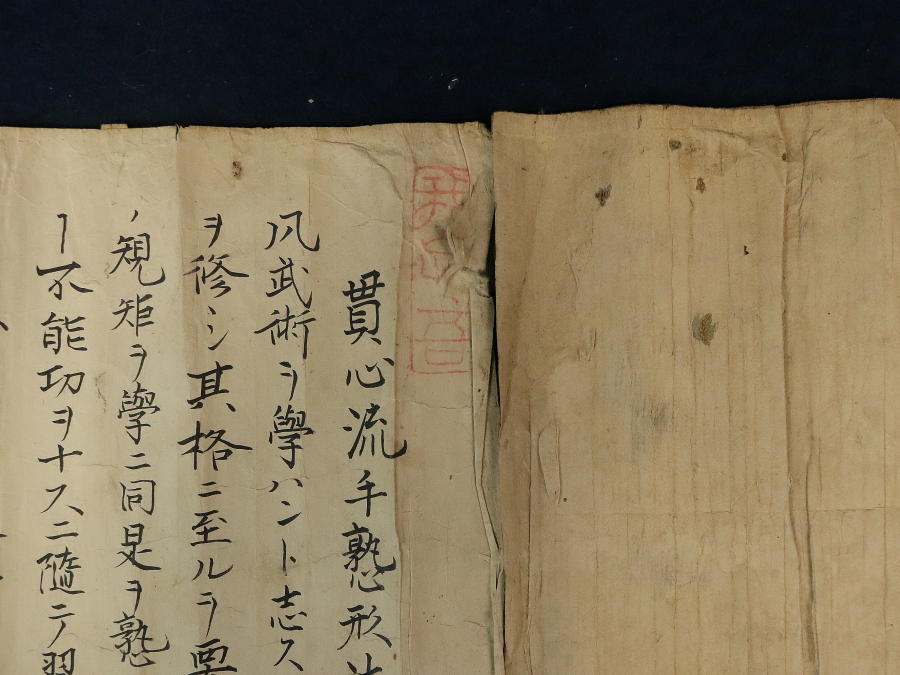 貫心流手熟形
凡武術ヲ學ハント志ス
ヲ修シ其格ニ至ルヲ要
ノ規矩ヲ學ニ同是ヲ熟
不能功ヲナスニ隨テ習